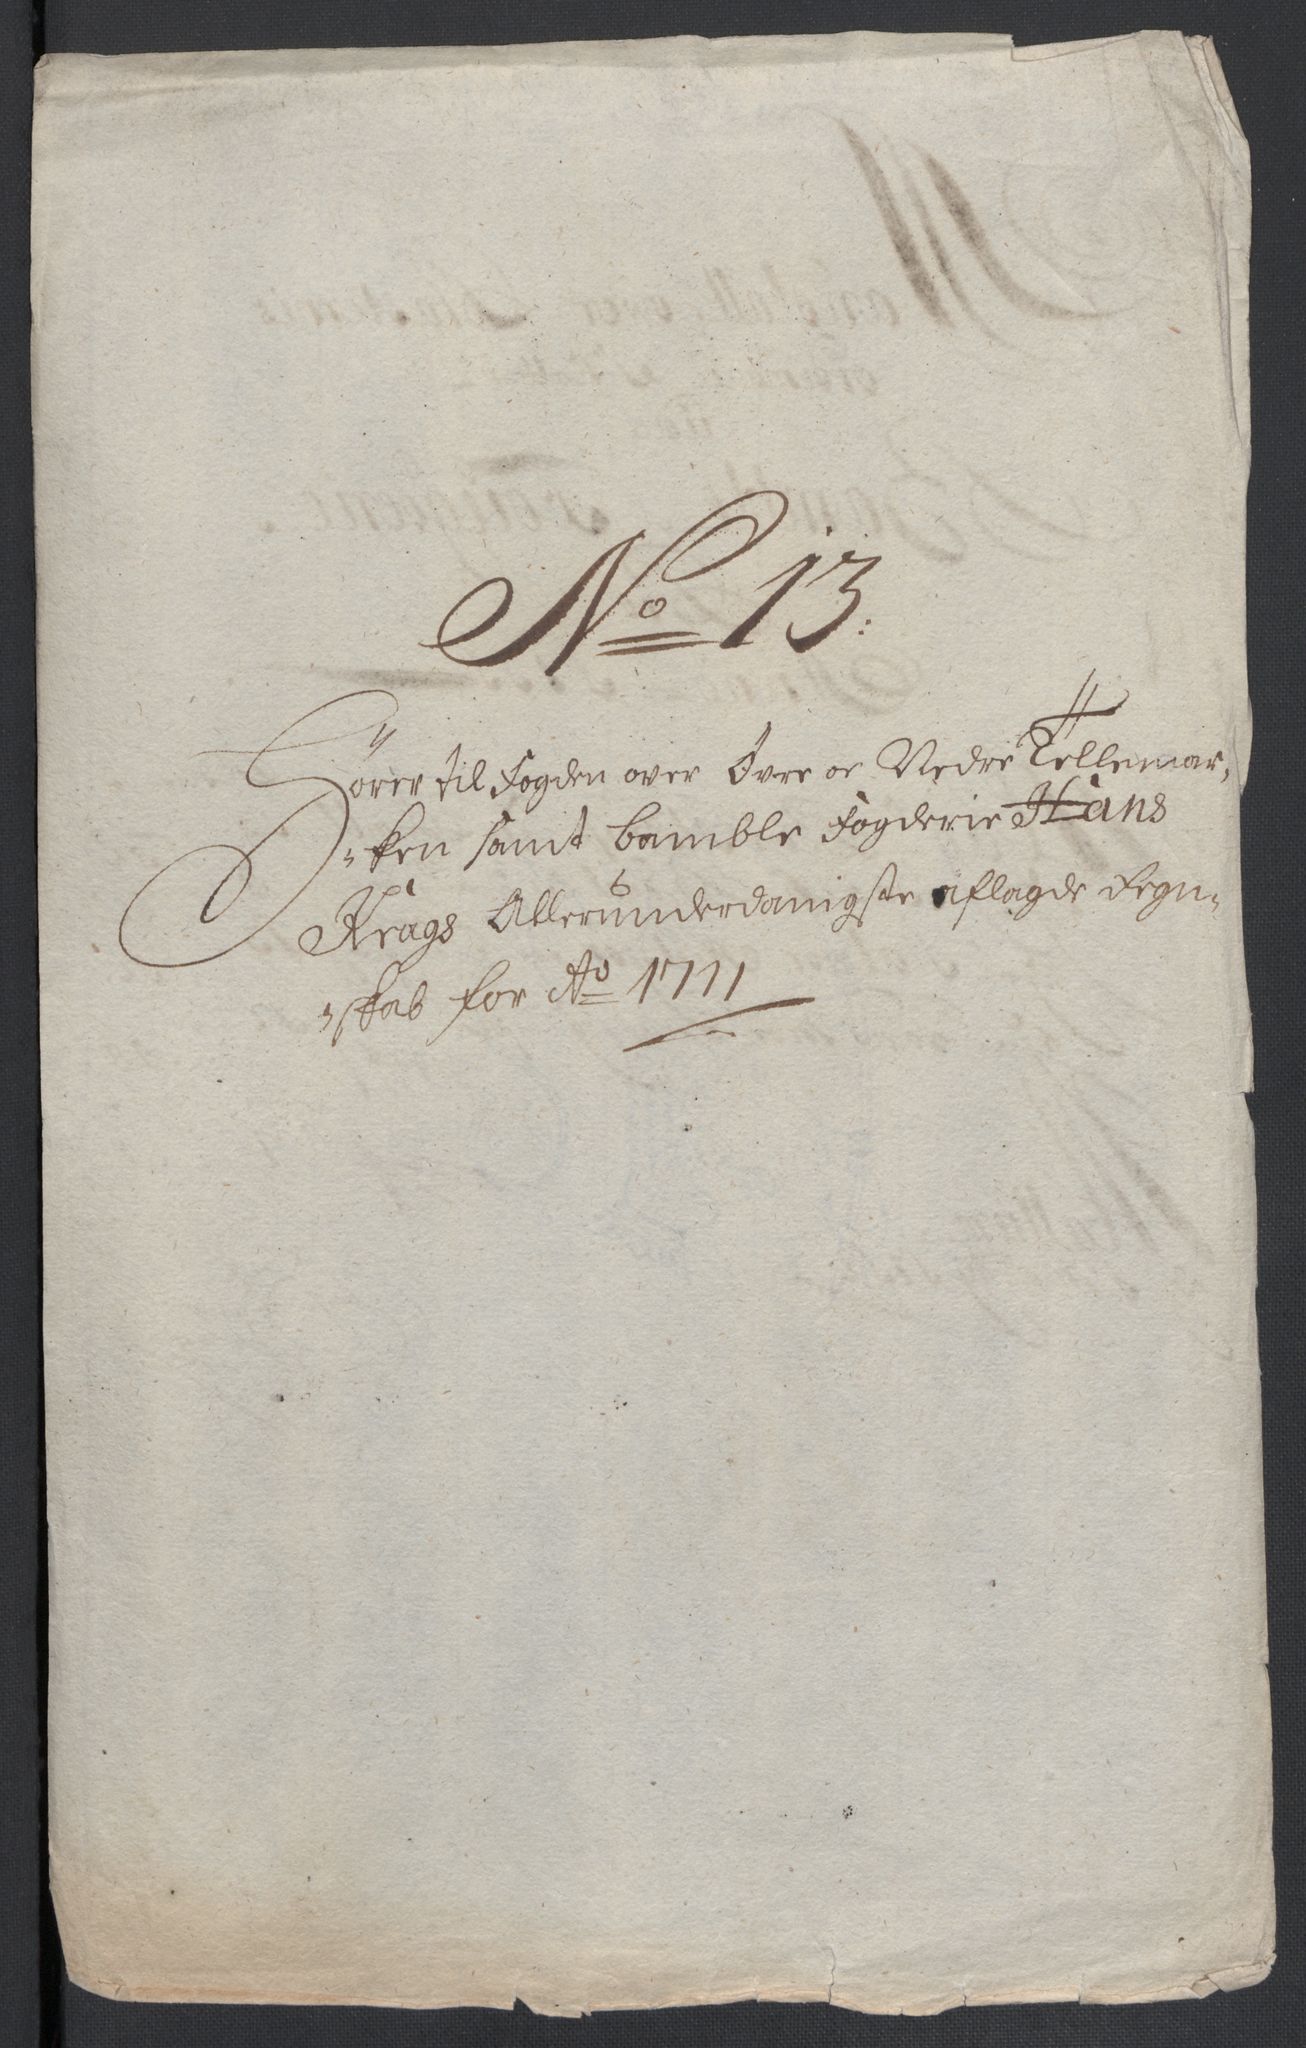 No 13:
Hörer til Fogden over Øvre oc Nedre Tellemar,
"ken samt bamble Fogderie Hans
Krags Allerunderdanigste aflagde Regn„
"skab for Ao 1711